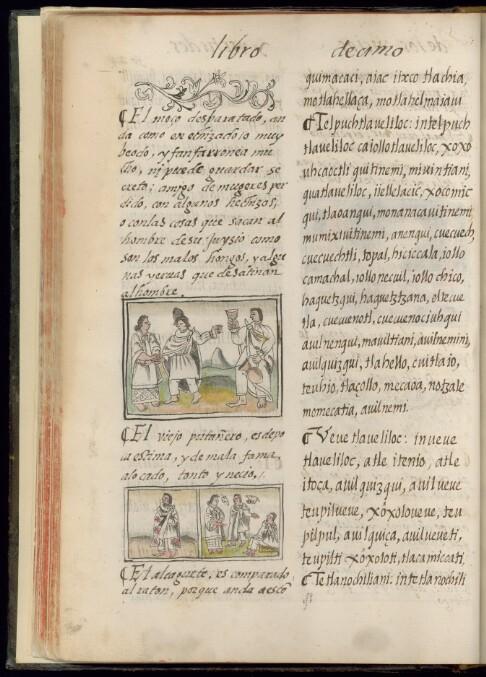 libro decimo
¶ El moço desbaratado, an
da como en echizado, o muy
beodo, y fanfarronea mu
cho, ni puede guardar se
creto; amigo de mugeres per
dido, con algunos hechizos,
o con las cosas que sacan al
hombre de su juysio como
son los malos hongos, y algu
nas yeruas que desatinan
al hombre.
¶ El viejo putañero, es de po
ca estima, y de mala fama,
alocado, tonto y necio.
¶ El alcaguete, es comparado
al raton, porque anda a esco
quimacaci, aiac ixco tlachia,
motlahellaça, motlahelmaiaui
¶ Telpuchtlaueliloc: in telpuch
tlaueliloc ca iollotlaueliloc, xoxo
uhcaoctli quitinemi, mihuintiani,
quatlaueliloc, iiellelacic, xocomic
qui, tlaoanqui, monanacauitinemi
mumixiuitinemi, anenqui, cuecuech,
cuecuechtli, topal, hiciccala, iollo
camachal, iollo necuil, iollo chico,
haquetzqui, haquetztzana,
tla, cuecuenotl, cuecuenociuhqui
auilnenqui, mauiltiani, auilnemini,
auilquizqui, tlahello, cuitlaio,
teuhio, tlaçollo, mecaoa, notzale
momecatia, auilnemi.
¶ Veue tlaueliloc: in ueue
tlaueliloc, atle itenio, atle
itoca, auilquizqui, auilueue
teupilueue, xoxoloueue, teu
pilpul, auilquiça, auilueueti,
teupilti xoxoloti, tlacamiccati.
¶ Tetlanochiliani: in tetlanochili